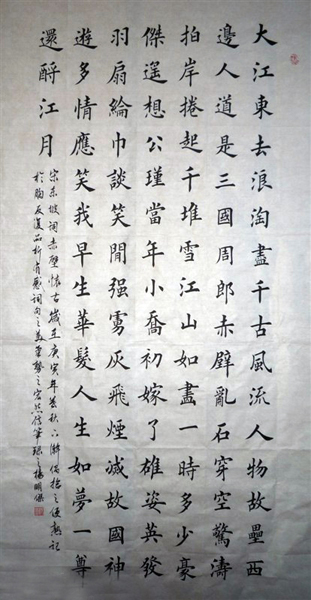 大江東去浪淘盡千古風流人物故壘西
邊人道是三國周郎赤壁亂石穿空驚濤
拍岸捲起千堆雪江山如畫一時多少豪
傑遙想公瑾當年小喬初嫁了雄姿英發
羽扇綸巾談笑閒强虜灰飛煙滅故國神
遊多情應笑我早生華髮人生如夢一尊
還酹江月
宋東坡詞赤壁懷古歲庚寅年秋
於胸反復品析有感詞